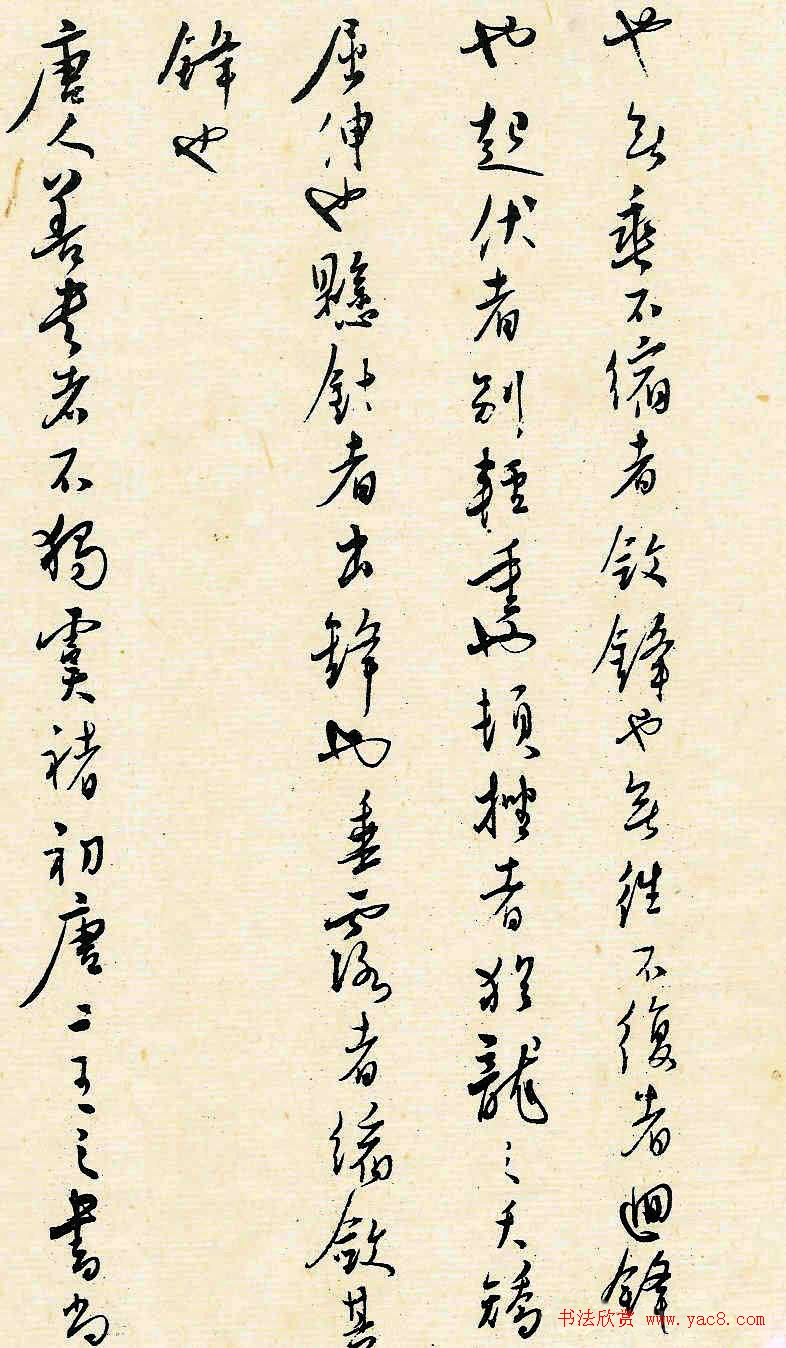 也無垂不縮者斂鋒也無往不復者迴鋒
也起伏者别輕重也頓挫者猶龍之夭矯
屈伸也懸針者出鋒也垂露者縮斂其
鋒也
唐人善書者不獨虞褚初唐二王之書尚
书法欣赏 www.yac8.com